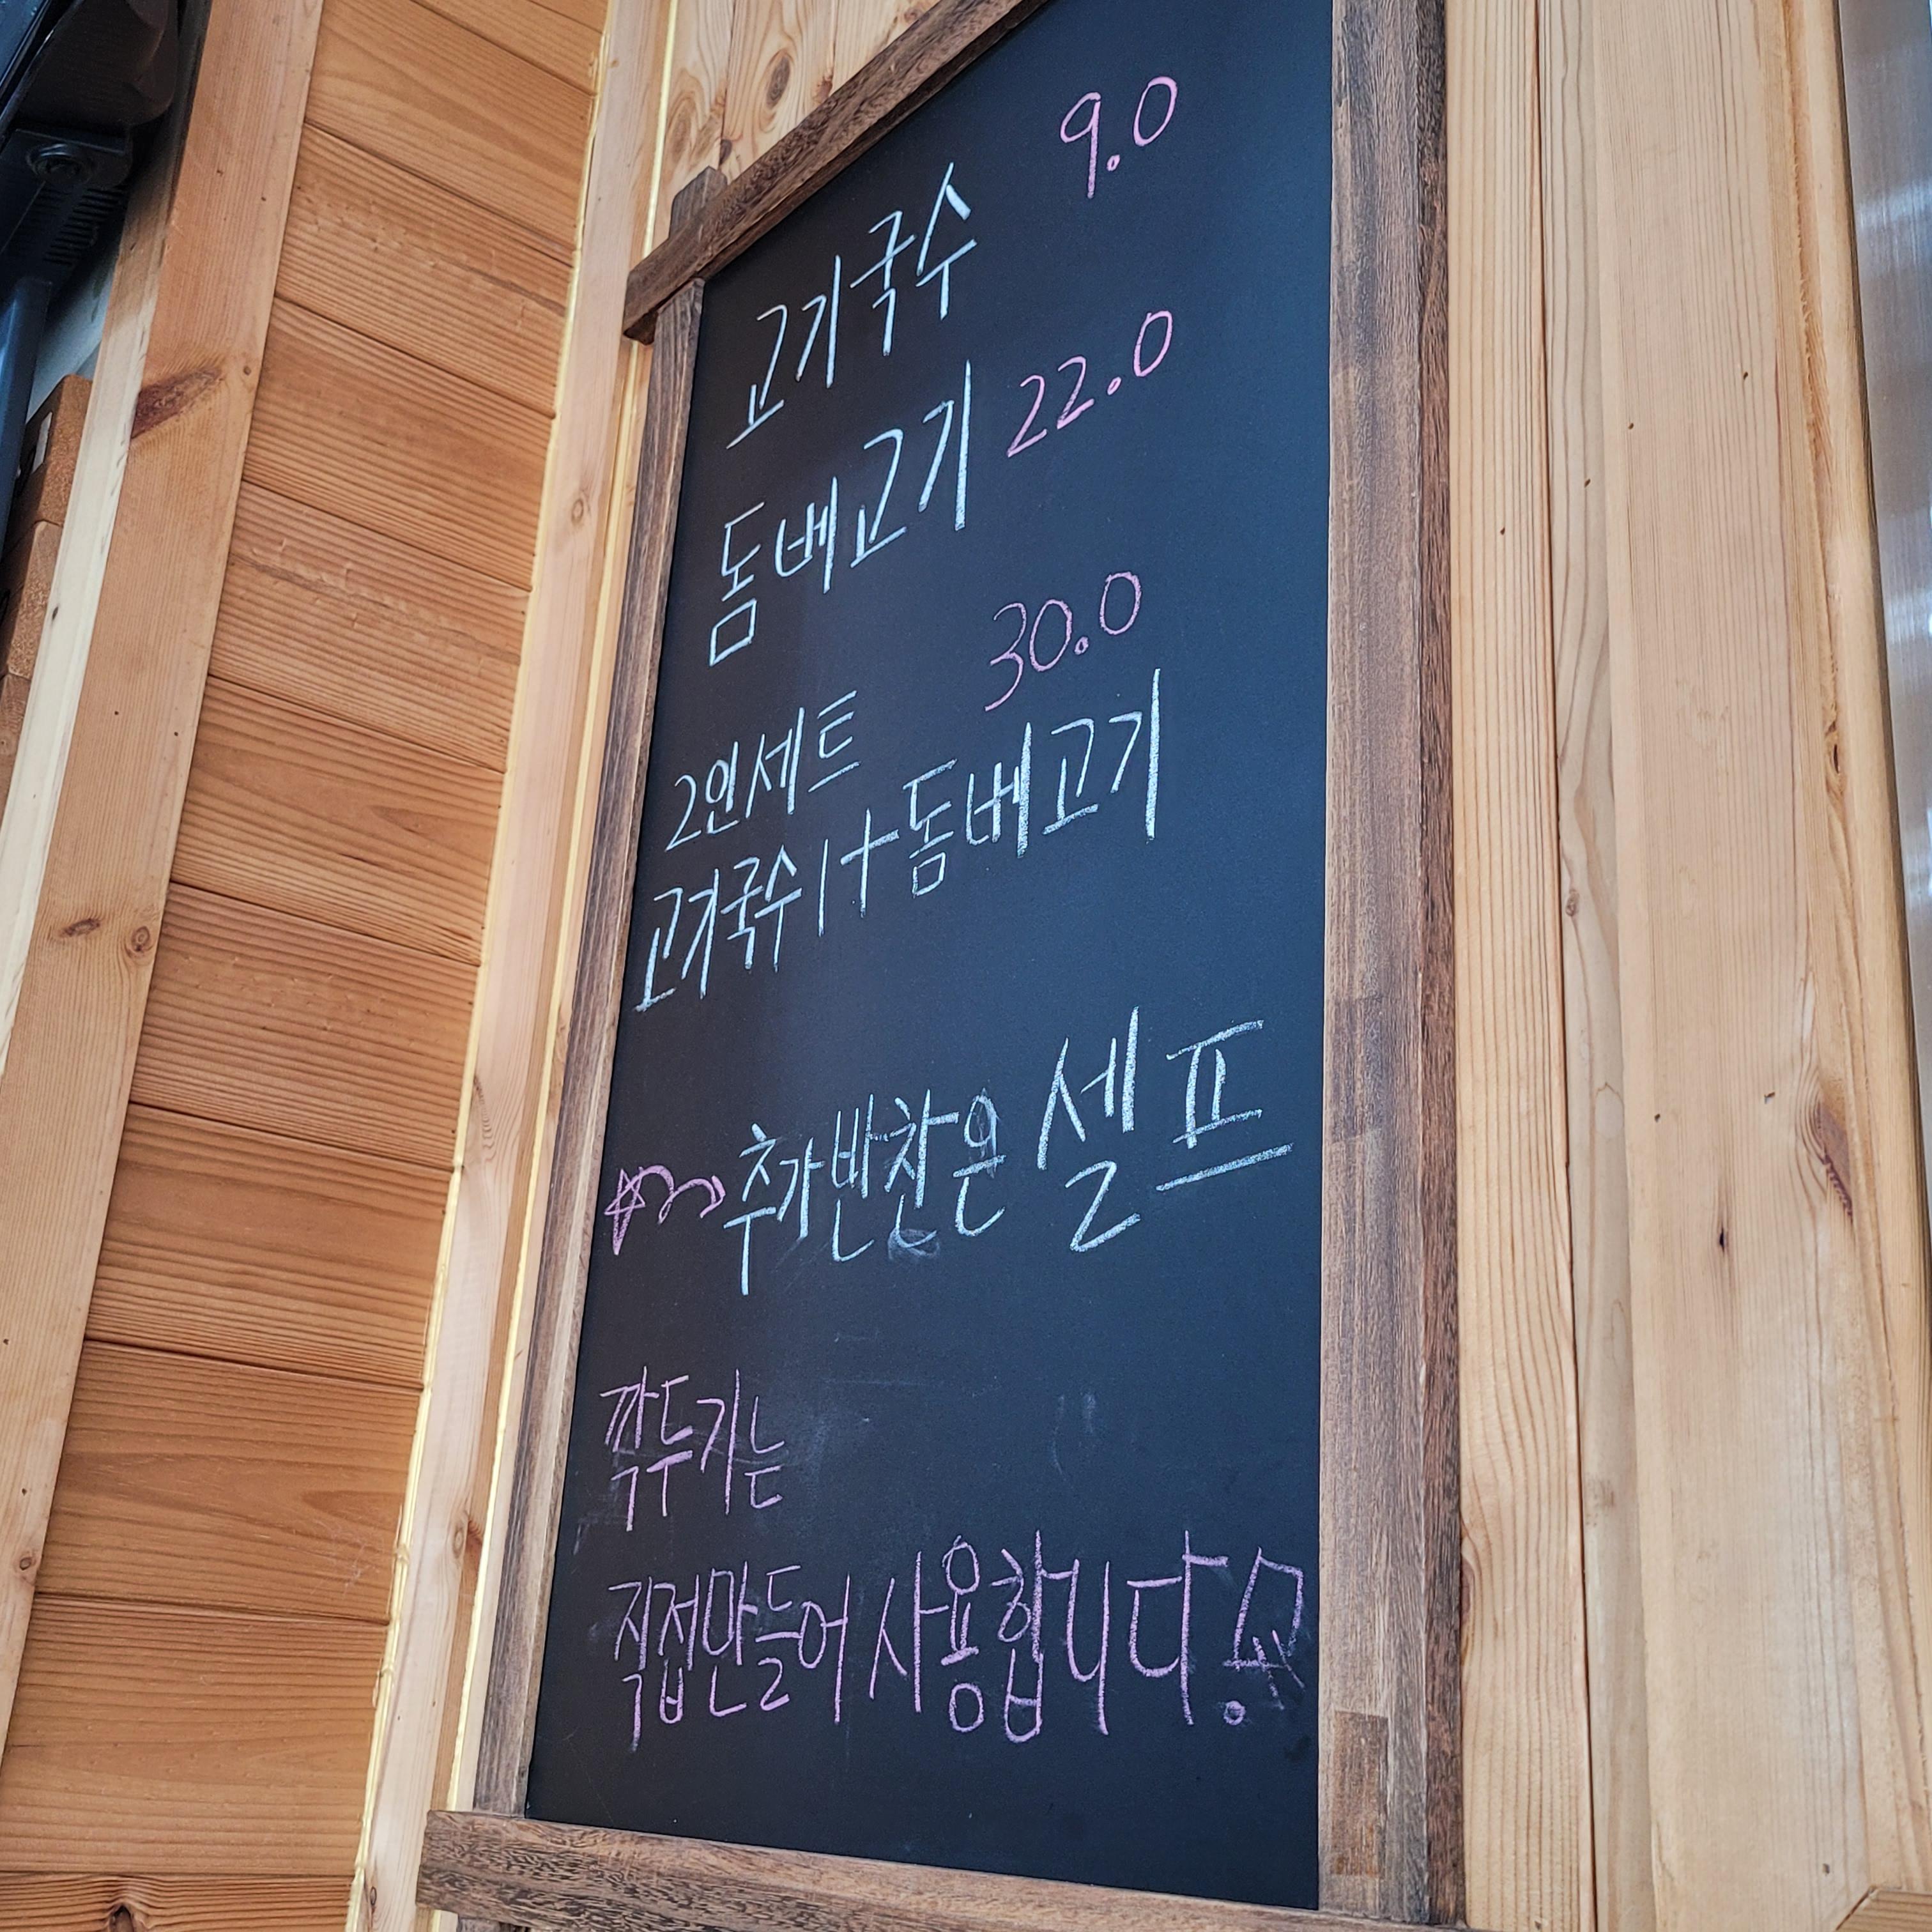 고기국수 9.0
돔베고기 22.0
2인세트 30.0
고기국수1+돔베고기
추가반찬은 셀프
깍두기는
직접만들어 사용합니다.